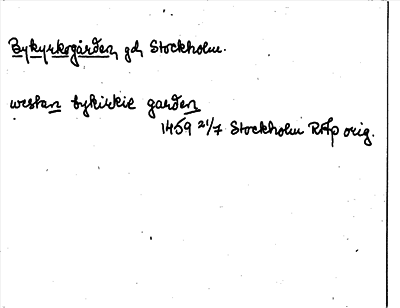 Bykyrkogården, gd, Stockholm.
westan bykirkie garden
1459 21/7 Stockholm RAp orig.